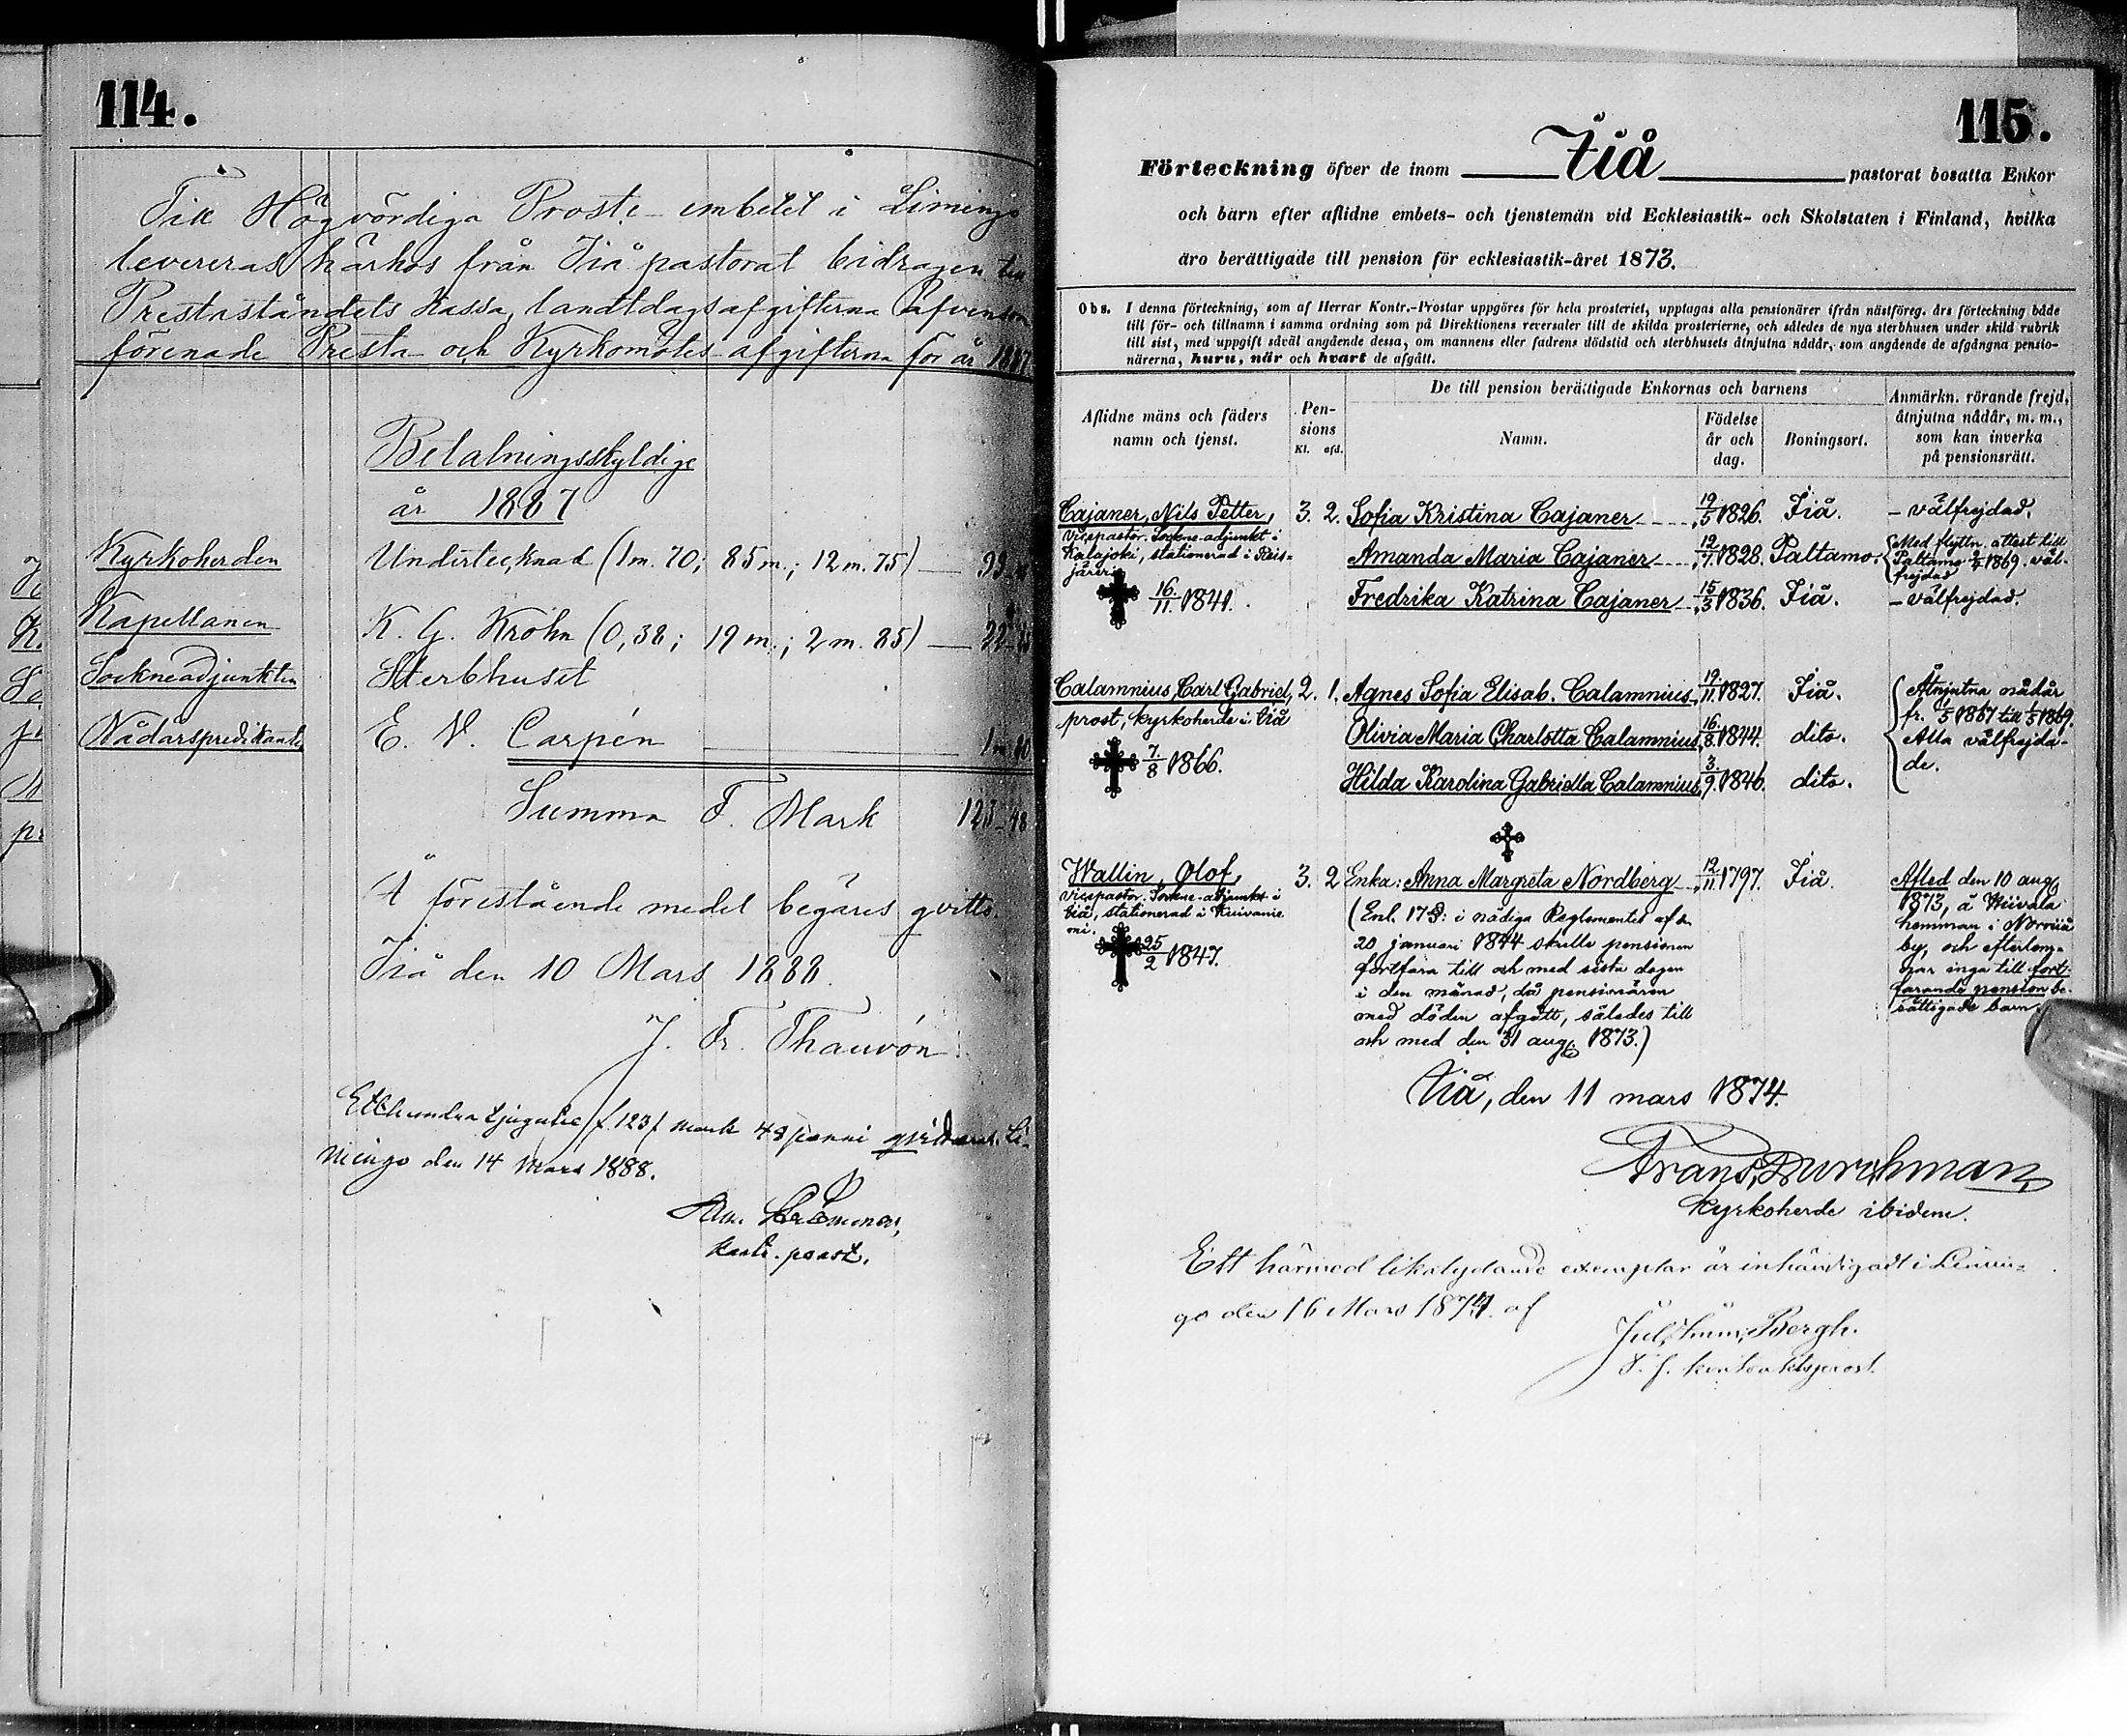 114.
Till Högvördiga Prosteembetet i Limingo
levereras härhos från Iiå pastorat bidragen till
Presteståndets kassa, landtdagsafgifterna äfvensom
förenade Presta- och Kyrkomötes-afgifterna för år 1887.
Betalningsskyldige
år 1887
Kyrkoherden Undertecknad (1m. 70; 85 m.; 12 m. 75) — 99
Kapellanen K. G. Krohn (0,38; 19 m.; 2 m. 85) — 22
Sockneadjunkten Sterbhuset
Nådårspredikanten E. V. Carpén 1
Summa F. Mark 123-48
Å förestående medel begäres qvitto.
Iiå den 10 Mars 1888.
J. Fr. Thauvón.
Etthundra tjugutre /123/ mark 48 penni qvitteras. Li-
mingo den 14 Mars 1888.
prost.
115.
Förteckning öfver de inom Iiå pastorat bosatta Enkor
och barn efter aflidne embets- och tjenstemän vid Ecklesiastik- och Skolstaten i Finland, hvilka
äro berättigade till pension för ecklesiastik-året 1873.
Obs. I denna förteckning, som af Herrar Kontr.-Prostar uppgöres för hela prosteriet, upptagas alla pensionärer ifrån nästföreg. års förteckning både
till för- och tillnamn i samma ordning som på Direktionens reversaler till de skilda prosterierne, och således de nya sterbhusen under skild rubrik
till sist, med uppgift såväl angående dessa, om mannens eller fadrens dödstid och sterbhusets åtnjutna nådår, som angående de afgångna pensio-
närerna, huru, när och hvart de afgått.
Aflidne mäns och fäders
namn och tjenst.
Pen-
sions
Kl. afd.
De till pension berättigade Enkornas och barnens
Namn.
Födelse
år och
dag.
Boningsort.
Anmärkn. rörande frejd,
åtnjutna nådår, m. m.,
som kan inverka
på pensionsrätt.
Cajaner, Nils Petter, 3. 2. Sofia Kristina Cajaner 19/5 1826. Iiå. – välfrejdad.
Vicepastor. Sockne-adjunkt i
Kalajoki, stationerad i Reis-
järvi
16/11 1841.
Amanda Maria Cajaner 12/7 1828. Paltamo. Med flyttn. attest till
Paltamo 1869. väl-
frejdad
Fredrika Katrina Cajaner 15/3 1836. Iiå. – välfrejdad.
Calamnius, Carl Gabriel, 2. 1. Agnes Sofia Elisab. Calamnius 19/11 1827. Iiå.
prost, kyrkoherde i Iiå
7/8 1866.
Olivia Maria Charlotta Calamnius 16/8 1844. dito.
Hilda Karolina Gabriella Calamnius 3/9 1846. dito.
Åtnjutna nådår
fr. 1/5 1867 till 1/5 1869.
Alla välfrejda-
de.
Wallin, Olof, 3. 2 Enka: Anna Margreta Nordberg 12/11 1797. Iiå.
Vicepastor. Sockne-adjunkt i
Iiå, stationerad i Kuivanie
mi.
25/2 1847.
(Enl. 17 §: i nådiga Reglementet af d.
20 januari 1844 skulle pensionen
fortfara till och med sista dagen
i den månad, då pensionären
med döden afgått, således till
och med den 31 aug. 1873.)
Afled den 10 aug.
1873, å Niivala
hemman i Norriiå
by, och efterlem-
nar inga till fort-
farande pension be-
rättigade barn.
Iiå, den 11 mars 1874.
Frans, Durchman,
kyrkoherde ibidem.
Ett härmed likalydande exemplar är inhändigadt i Limin-
go den 16 Mars 1874. af
Jul. Imm. Bergh.
t. f. kontraktsprost.